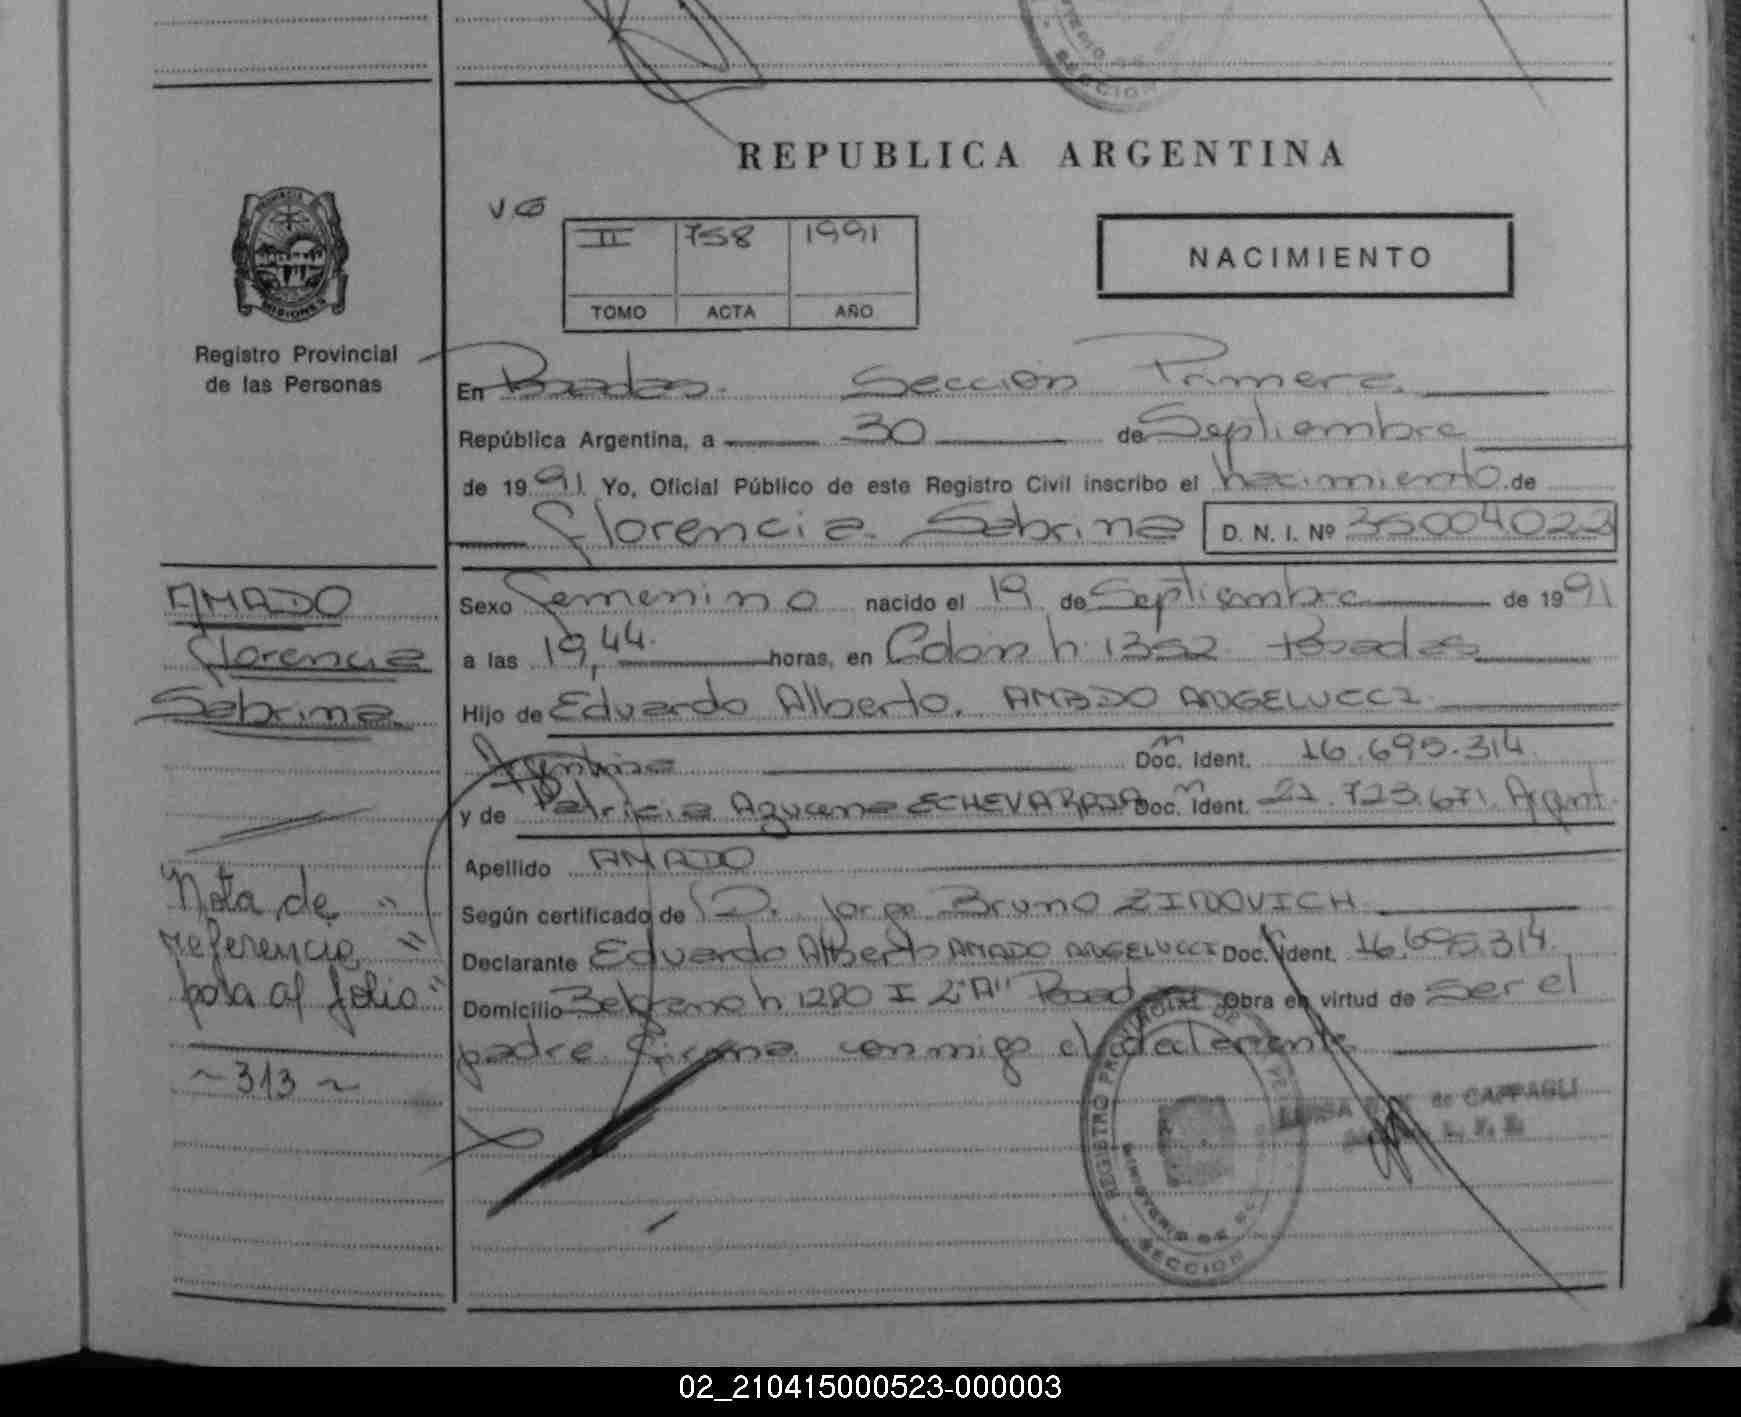 REPUBLICA ARGENTINA
VG
II 758 1991
TOMO ACTA AÑO
NACIMIENTO
PROVINCIA
MISIONES
Registro Provincial
de las Personas
En Posadas. Sección Primera.
República Argentina, a 30 de Septiembre
de 1991 Yo, Oficial Público de este Registro Civil inscribo el nacimiento de
Florencia Sabrina D. N. I. Nº 35004022
Sexo Femenino nacido el 19 de Septiembre de 1991
a las 19,44. horas, en Colón n. 1352 Posadas
Hijo de Eduardo Alberto. AMADO ANGELUCCI
Argentina Doc. Ident. 16.695.314
y de Patricia Azucena ECHEVARRIA Doc. Ident. 21.723.671. Argent.
Apellido AMADO
Según certificado de D. Jorge Bruno ZINOVICH
Declarante Eduardo Alberto AMADO ANGELUCCI Doc. Ident. 16.695.314.
Domicilio Belgrano n 1280 I 2 "A" Posad Obra en virtud de ser el
padre. Firma conmigo el declarante
AMADO
Florencia
Sabrina
Nota de "
referencia "
pasa al folio "
~ 313 ~
REGISTRO PROVINCIAL DE
MINISTERIO DE
SECCION
de CAPPAGLI
SECCION
02_210415000523-000003